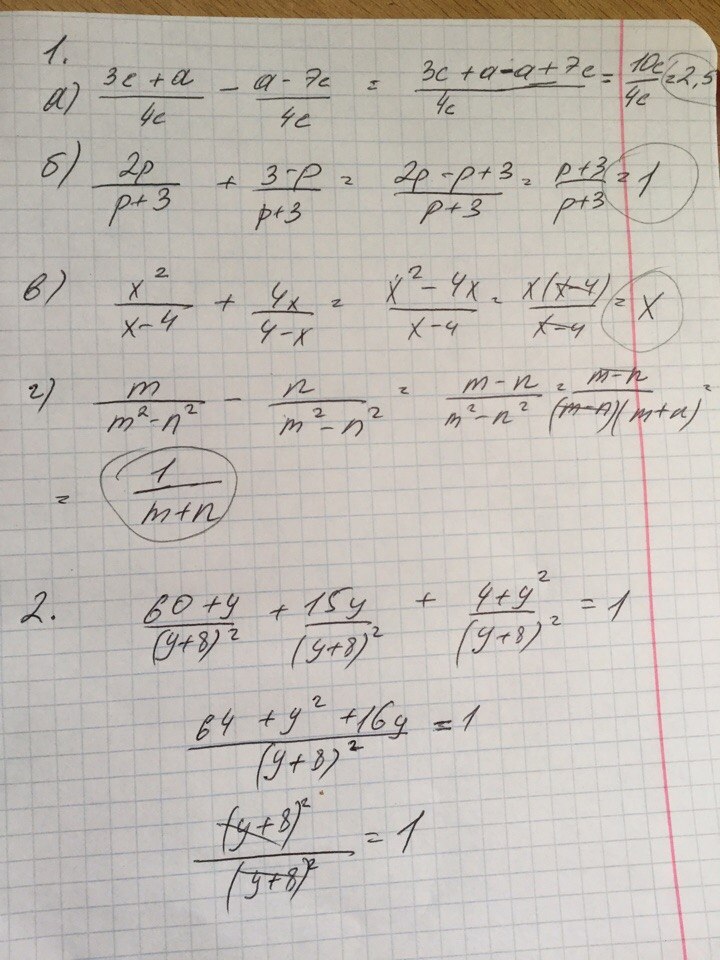 1.
а) (3c + a)/(4c) - (a - 7c)/(4c) = (3c + a - a + 7c)/(4c) = 10c/4c = 2,5
б) 2p/(p+3) + (3-p)/(p+3) = (2p - p + 3)/(p+3) = (p+3)/(p+3) = 1
в) x²/(x-4) + 4x/(4-x) = (x² - 4x)/(x-4) = x(x-4)/(x-4) = x
г) m/(m²-n²) - n/(m²-n²) = (m-n)/(m²-n²) = (m-n)/((m-n)(m+n)) =
= 1/(m+n)
2. (60+y)/(y+8)² + 15y/(y+8)² + (4+y²)/(y+8)² = 1
(64 + y² + 16y)/(y+8)² = 1
(y+8)²/(y+8)² = 1